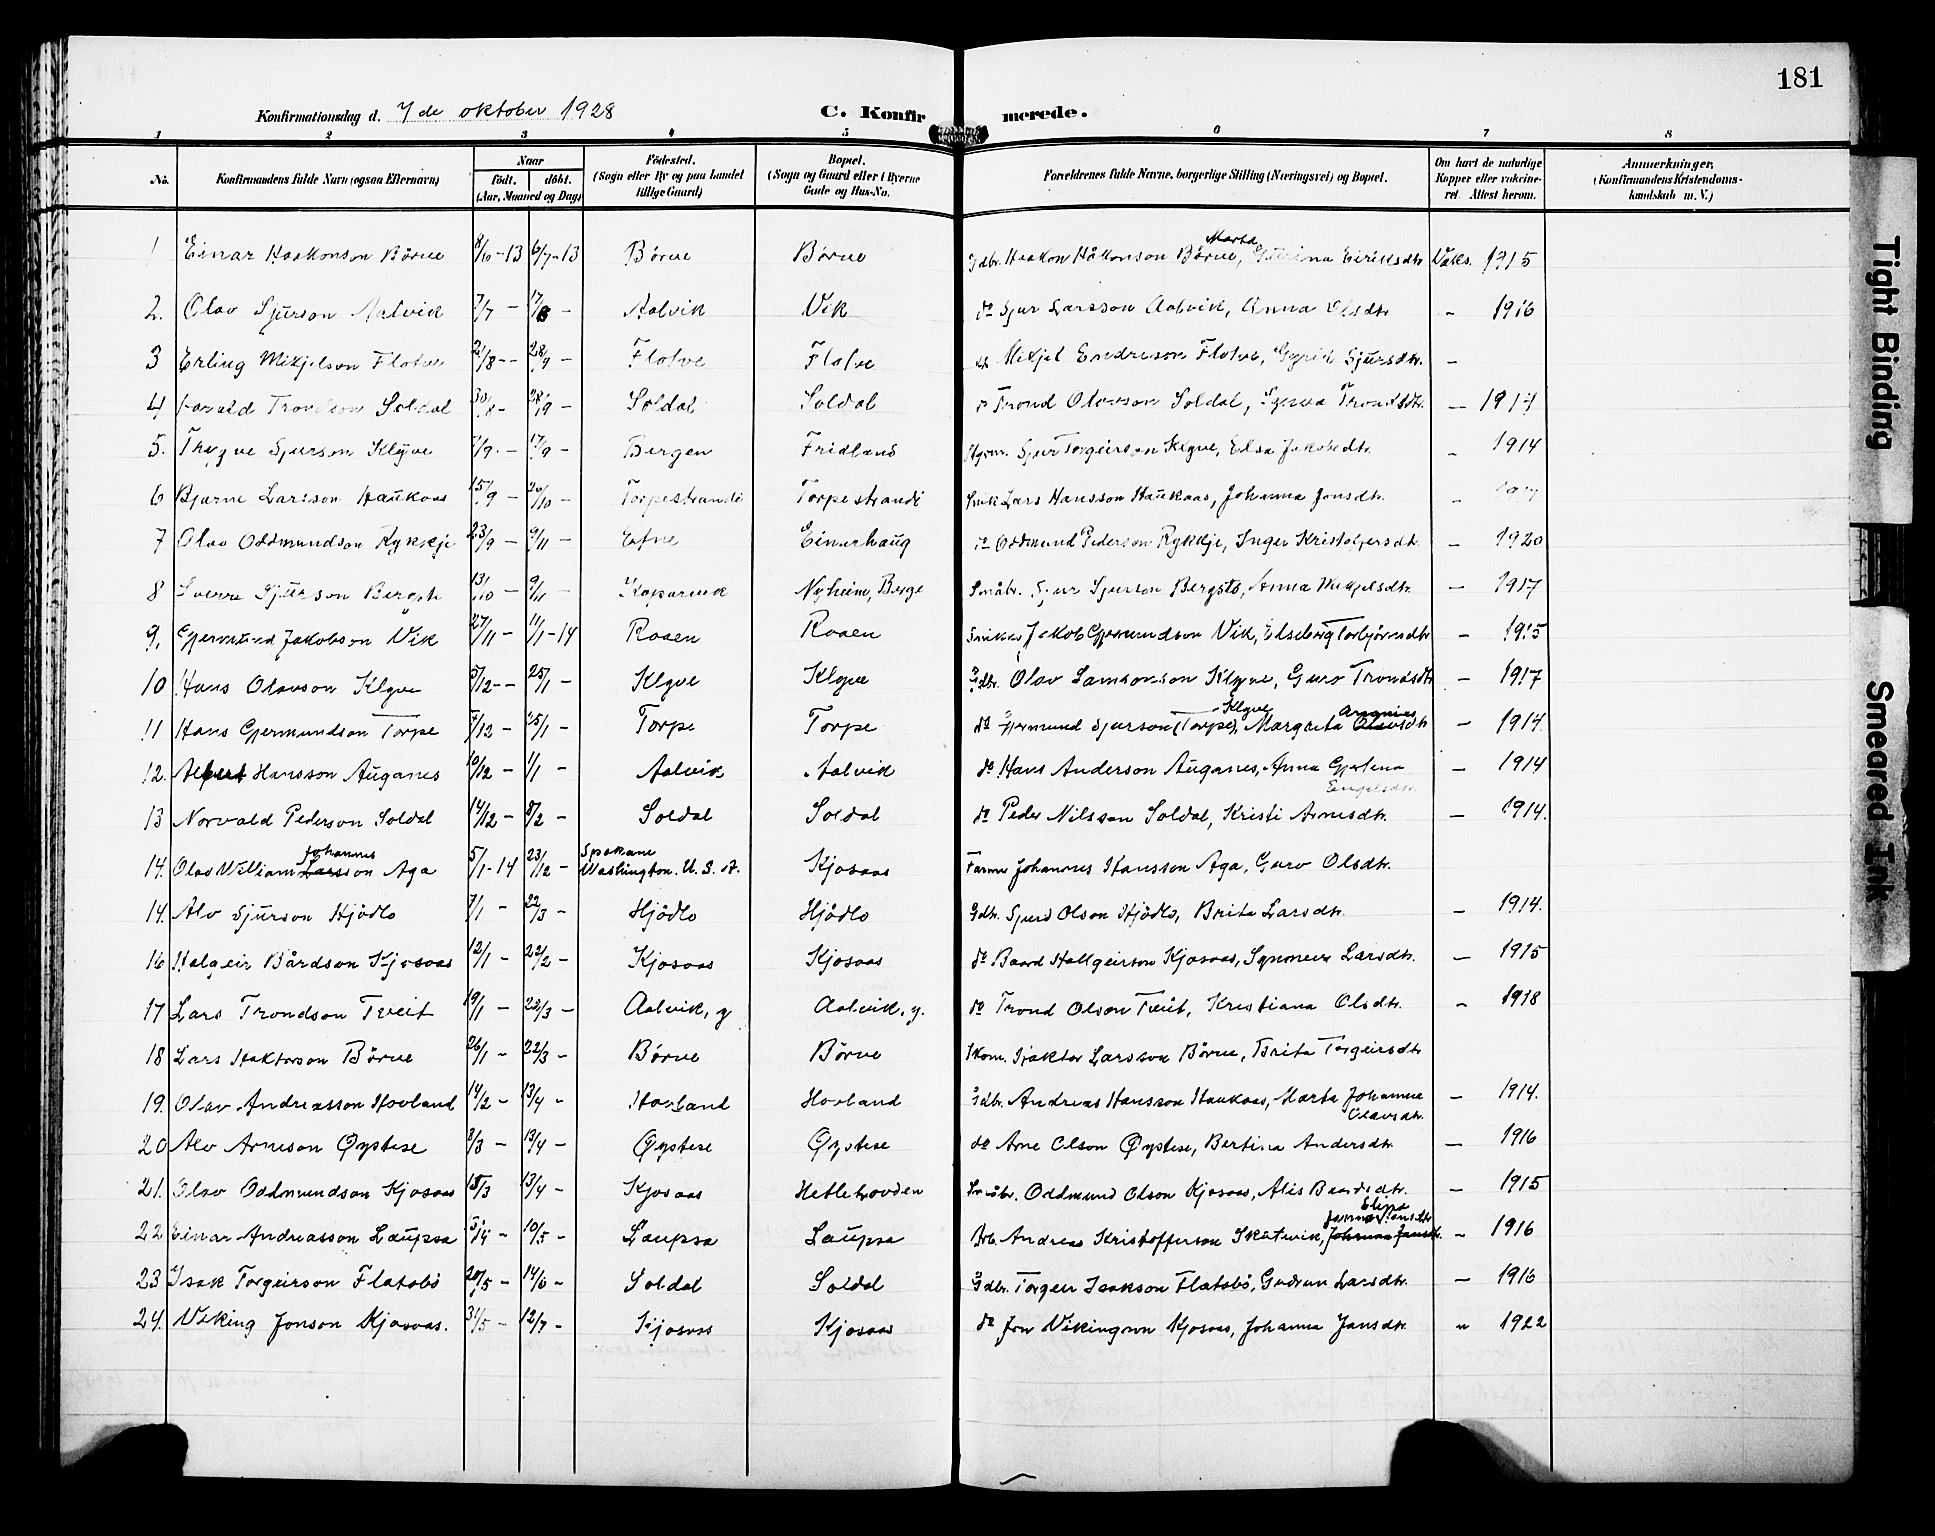 181
Konfirmationsdag d. 7de oktober 1928 C. Konfirmerede.
1 2 3 4 5 6 7 8
No. Konfirmandens fulde Navn (ogsaa Efternavn) Naar født. døbt. (Aar, Maaned og Dag) Fødested. (Sogn eller By og paa Landet tillige Gaard) Bopæl. (Sogn og Gaard eller i Byerne Gade og Hus-No. Forældrenes fulde Navne, borgerlige Stilling (Næringsvei) og Bopæl. Om havt de naturlige Kopper eller vakcineret. Attest herom. Anmerkninger, (Konfirmandens Kristendomskundskab m. V.)
1 Einar Haakonson Börve 8/6-13 6/7-13 Börve Börve Gdbr. Haakon Håkonson Börve, Marta Katrina Eiriksdtr. Vaks. 1915
2. Olav Sjurson Aalvik 7/7 - 17/8 - Aalvik Vik do Sjur Larsson Aalvik, Anna Olsdtr - 1916
3 Erling Mikjelson Flotve 2/8 - - 28/9 - Flotve Flotve do Mikjel Endreson Flotve, Gyrid Sjursdtr. -
4 Harald Trondson Soldal 30/8 - 28/9 - Soldal Soldal do Trond Olavson Soldal, Synva Trondsdtr. - 1914
5. Trygve Sjurson Klyve 7/9 - 17/9 - Bergen Fridland Sjur Torgeirson Klyve, Elsa Jakobsdtr. - 1914
6 Bjarne Larsson Haukaas 15/9 - 20/10 - Torpestrandi Torpestrandi Snik. Lars Hansson Haukaas, Johanna Jonsdtr. -
7 Olav Oddmundson Rykkje 23/9 - 9/11 - Efne Einerhaug do Oddmund Pederson Rykkje, Inger Kristofersdtr. - 1920
8 Sverre Sjurson Bergstö 13/10 - 9/11 - Kopervik Nyheim, Berge Småbr. Sjur Sjurson Bergstö, Anna Mikjelsdtr. - 1917
9. Gjermund Jakobson Vik 27/11 - 11/1-14 Rosen Rosen Snikar, Jakob Gjermundson Vik, Elseberg Torbjörnsdtr - 1915
10 Hans Olavson Klyve 5/12 - - 25/1 - Klyve Klyve Gdbr. Olav Samsonson Klyve, Guro Trondsdtr - 1917
11 Hans Gjermundson Torpe 7/12 - 25/1 - Torpe Torpe do Gjermund Sjurson (Torpe) - Klyve, Margreta Olavsdtr - 1914.
12. Albert Hansson Auganes 10/12 - 1/1 - Aalvik Aalvik do Hans Anderson Auganes, Anna Gjertina Engelsdtr. - 1914
13 Norvald Pederson Soldal 14/12 - 8/2 - Soldal Soldal do Peder Nilsson Soldal, Kristi Arnesdtr. - 1914.
14. Olav William Johannesson Aga 5/1-14 23/12 - Spokane Washington. U. S. A. Kjosaas Farmer Johannes Hansson Aga, Guro Olsdtr.
14. Alv Sjurson Hjödlo 7/1 - 22/3 - Hjödlo Hjödlo Gdbr. Sjurd Olson Hjödlo, Brita Larsdtr. - 1914.
16 Halgeir Bårdson Kjosaas 12/1 - 22/2 - Kjosaas Kjosaas do Baard Hallgeirson Kjosaas, Synneva Larsdtr. - 1915
17 Lars Trondson Tveit 19/1 - 22/3 - Aalvik, y Aalvik, y. do Trond Olson Tveit, Kristiana Olsdtr. - 1918
18 Lars Haktorson Börve 26/1 - 22/3 - Börve Börve Skom. Haktor Larsson Börve, Brita Torgeirsdtr
19. Olav Andreasson Hovland 14/2 - 13/4 - Hovland Hovland Gdbr. Andreas Hansson Haukaas, Marta Johanna Olavsdtr. - 1914.
20 Alv Arneson Øystese 8/3 - 13/4 - Øystese Øystese do Arne Olson Øystese, Bertina Andersdtr. - 1916
21. Olav Oddmundson Kjosaas 15/3 13/4 - Kjosaas Hetlehovden Småbr. Oddmund Olson Kjosaas, Alis Baardsdtr. - 1915
22 Einar Andreasson Laupsa 5/4 - 10/5 - Laupsa Laupsa Arb. Andreas Kristofferson Skutevik, Elina - 1916
23 Isak Torgeirson Flatabö 20/5 - 14/6 - Soldal Soldal Gdbr. Torgeir Isakson Flatabö, Gudrun Larsdtr. - 1916
24. Viking Jonson Kjosaas. 31/5 - 12/7 - Kjosaas Kjosaas do Jon Vikingson Kjosaas, Johanna Jansdtr. " 1922
Tight Binding
Smeared Ink